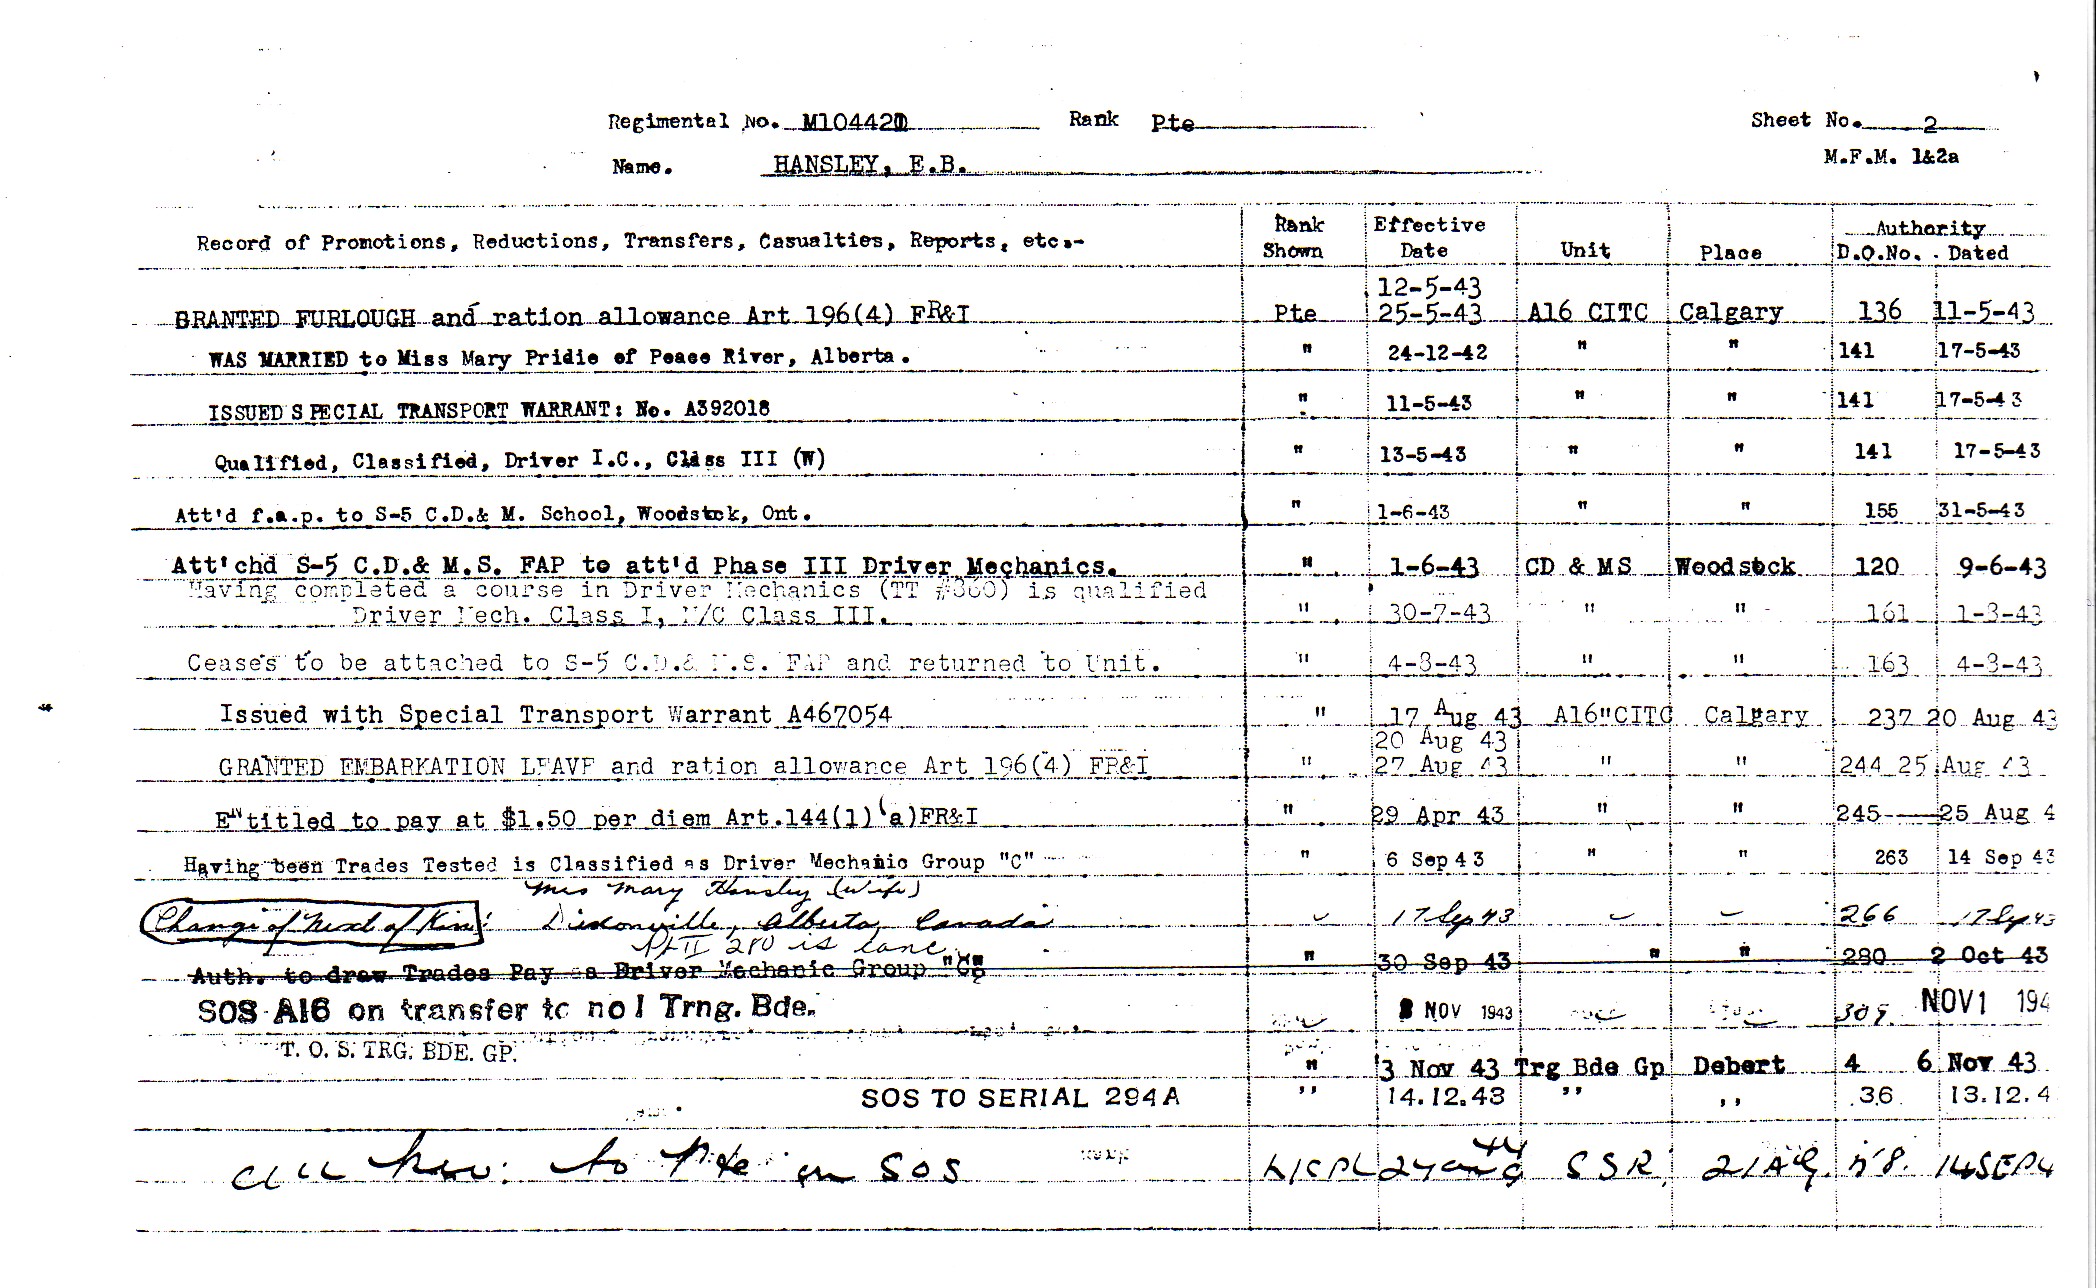 Regimental No. M104421 Rank Pte Sheet No. 2
M.F.M. 1&2a
Name. HANSLEY, E.B.
Record of Promotions, Reductions, Transfers, Casualties, Reports, etc.- Rank Shown Effective Date Unit Place Authority D.O.No. Dated
12-5-43
GRANTED FURLOUGH and ration allowance Art 196(4) FR&I Pte 25-5-43 A16 CITC Calgary 136 11-5-43
WAS MARRIED to Miss Mary Pridie of Peace River, Alberta. " 24-12-42 " " 141 17-5-43
ISSUED SPECIAL TRANSPORT WARRANT: No. A392018 " 11-5-43 " " 141 17-5-43
Qualified, Classified, Driver I.C., Class III (W) " 13-5-43 " " 141 17-5-43
Att'd f.a.p. to S-5 C.D.& M. School, Woodstck, Ont. " 1-6-43 " " 155 31-5-43
Att'chd S-5 C.D.& M.S. FAP to att'd Phase III Driver Mechanics. " 1-6-43 CD & MS Woodstock 120 9-6-43
Having completed a course in Driver Mechanics (TT #360) is qualified
Driver Mech. Class I, M/C Class III. " 30-7-43 " " 161 1-8-43
Ceases to be attached to S-5 C.D.& M.S. FAP and returned to Unit. " 4-8-43 " " 163 4-8-43
Issued with Special Transport Warrant A467054 " 17 Aug 43 A16"CITC Calgary 237 20 Aug 43
20 Aug 43
GRANTED EMBARKATION LEAVE and ration allowance Art 196(4) FR&I " 27 Aug 43 " " 244 25 Aug 43
Entitled to pay at $1.50 per diem Art.144(1)(a)FR&I " 29 Apr 43 " " 245 25 Aug 4
Having been Trades Tested is Classified as Driver Mechanic Group "C" " 6 Sep 43 " " 263 14 Sep 43
Mrs Mary Hansley (Wife)
Change of Next of Kin: Dixonville, Alberta, Canada 17 Sep 43 266 17 Sep 43
Pt II 280 is canc
Auth. to draw Trades Pay as a Driver Mechanic Group "C" " 30 Sep 43 " " 280 2 Oct 43
SOS A16 on transfer to no 1 Trng. Bde. NOV 1943 305 NOV 1 194
T. O. S. TRG. BDE. GP. " 3 Nov 43 Trg Bde Gp Debert 4 6 Nov 43
SOS TO SERIAL 294A " 14.12.43 " " 36 13.12.4
to Pte on SOS SSR 14 SEP 4